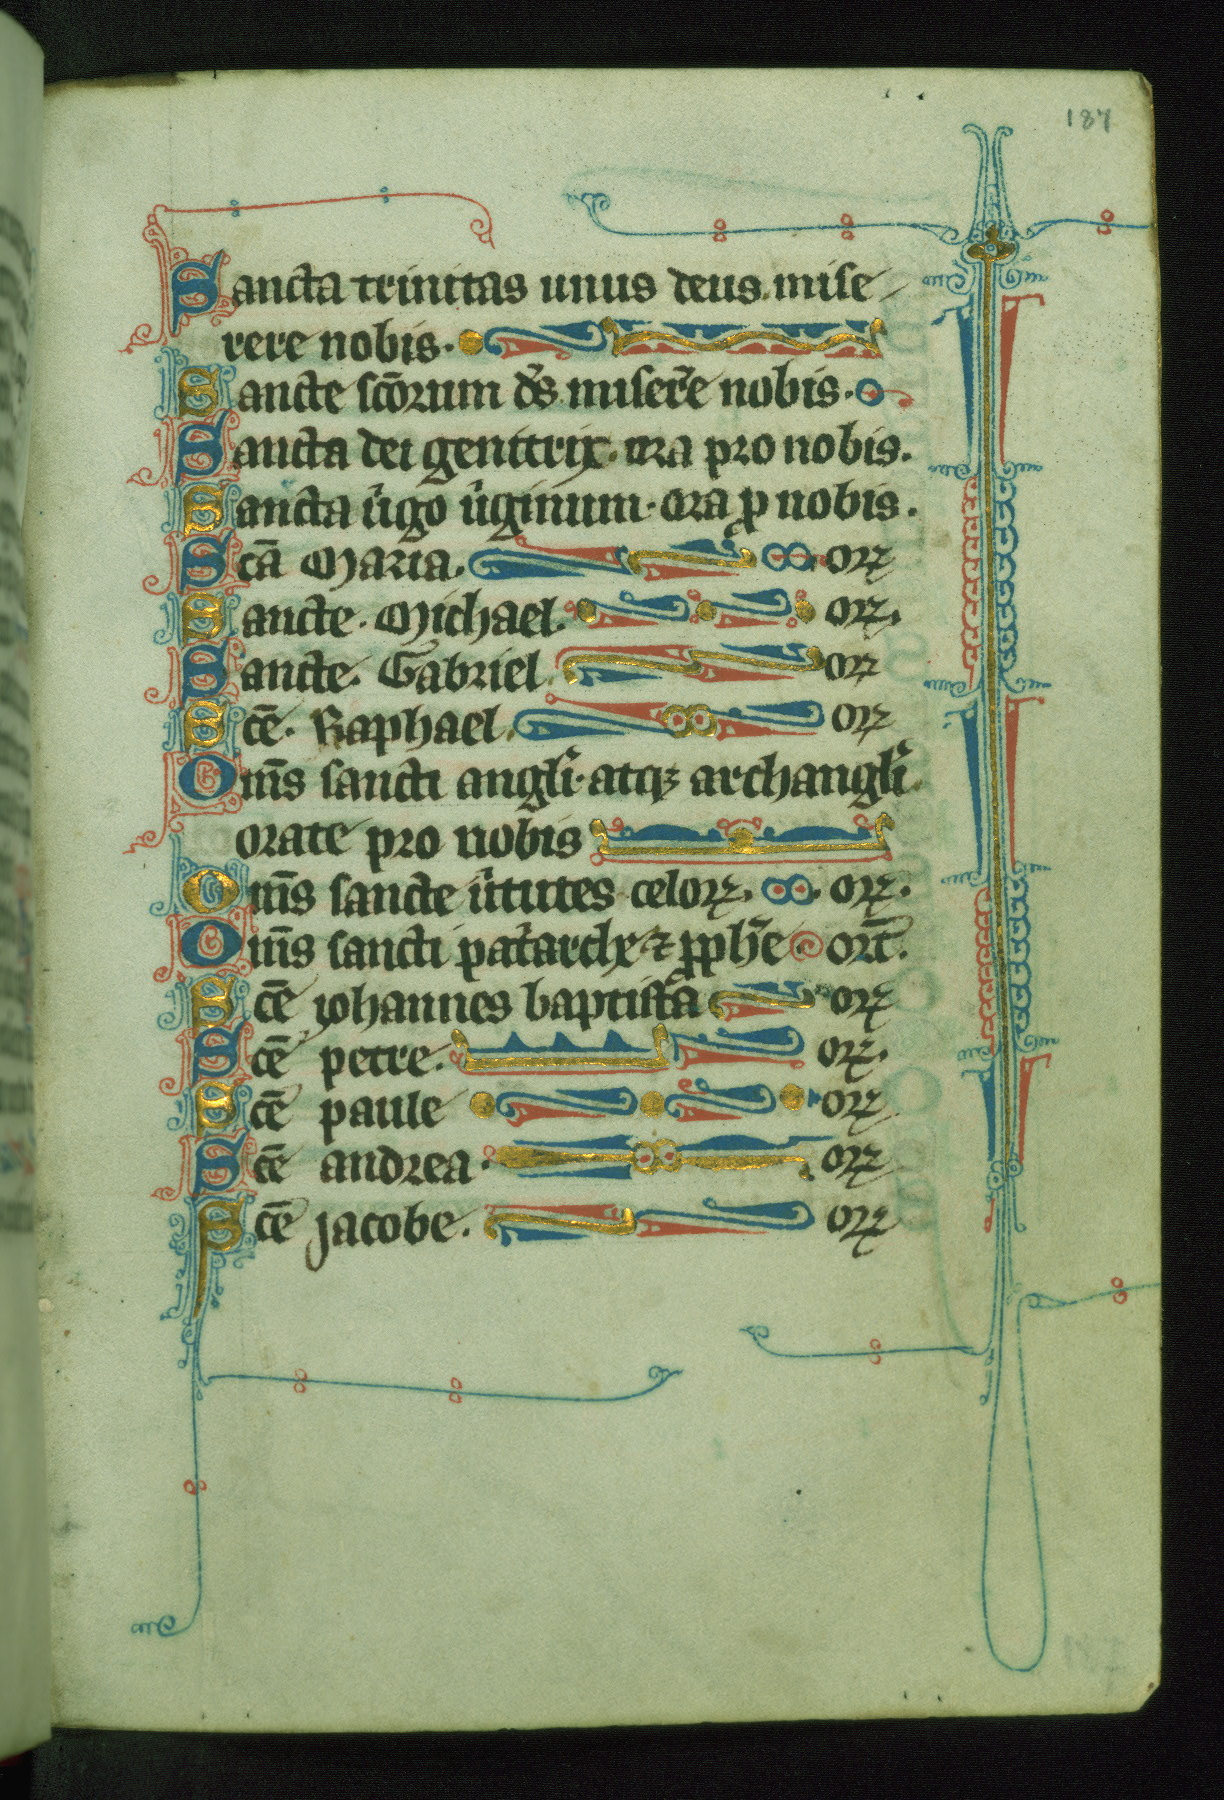 187
Sancta trinitas unus deus mise
rere nobis.
Sancte sc̄orum d̄s miser̄e nobis.
Sancta dei genitrix ora pro nobis.
Sancta uͥgo uͥginum. ora ꝓ nobis.
Sc̄a Maria. orꝝ
Sancte. Michael. orꝝ.
Sancte. Gabriel. orꝝ
Sc̄e. Raphael. orꝝ
Om̄s sancti angl̄i. atqꝫ archangl̄i
orate pro nobis
Om̄s sancte uͥtutes celoꝝ. orꝝ.
Om̄s sancti pat̄arche ⁊ ꝓph̄e or̄t.
Sc̄e iohannes baptista orꝝ
Sc̄e petre. orꝝ.
Sc̄e paule orꝝ
Sc̄e andrea. orꝝ
Sc̄e jacobe. orꝝ